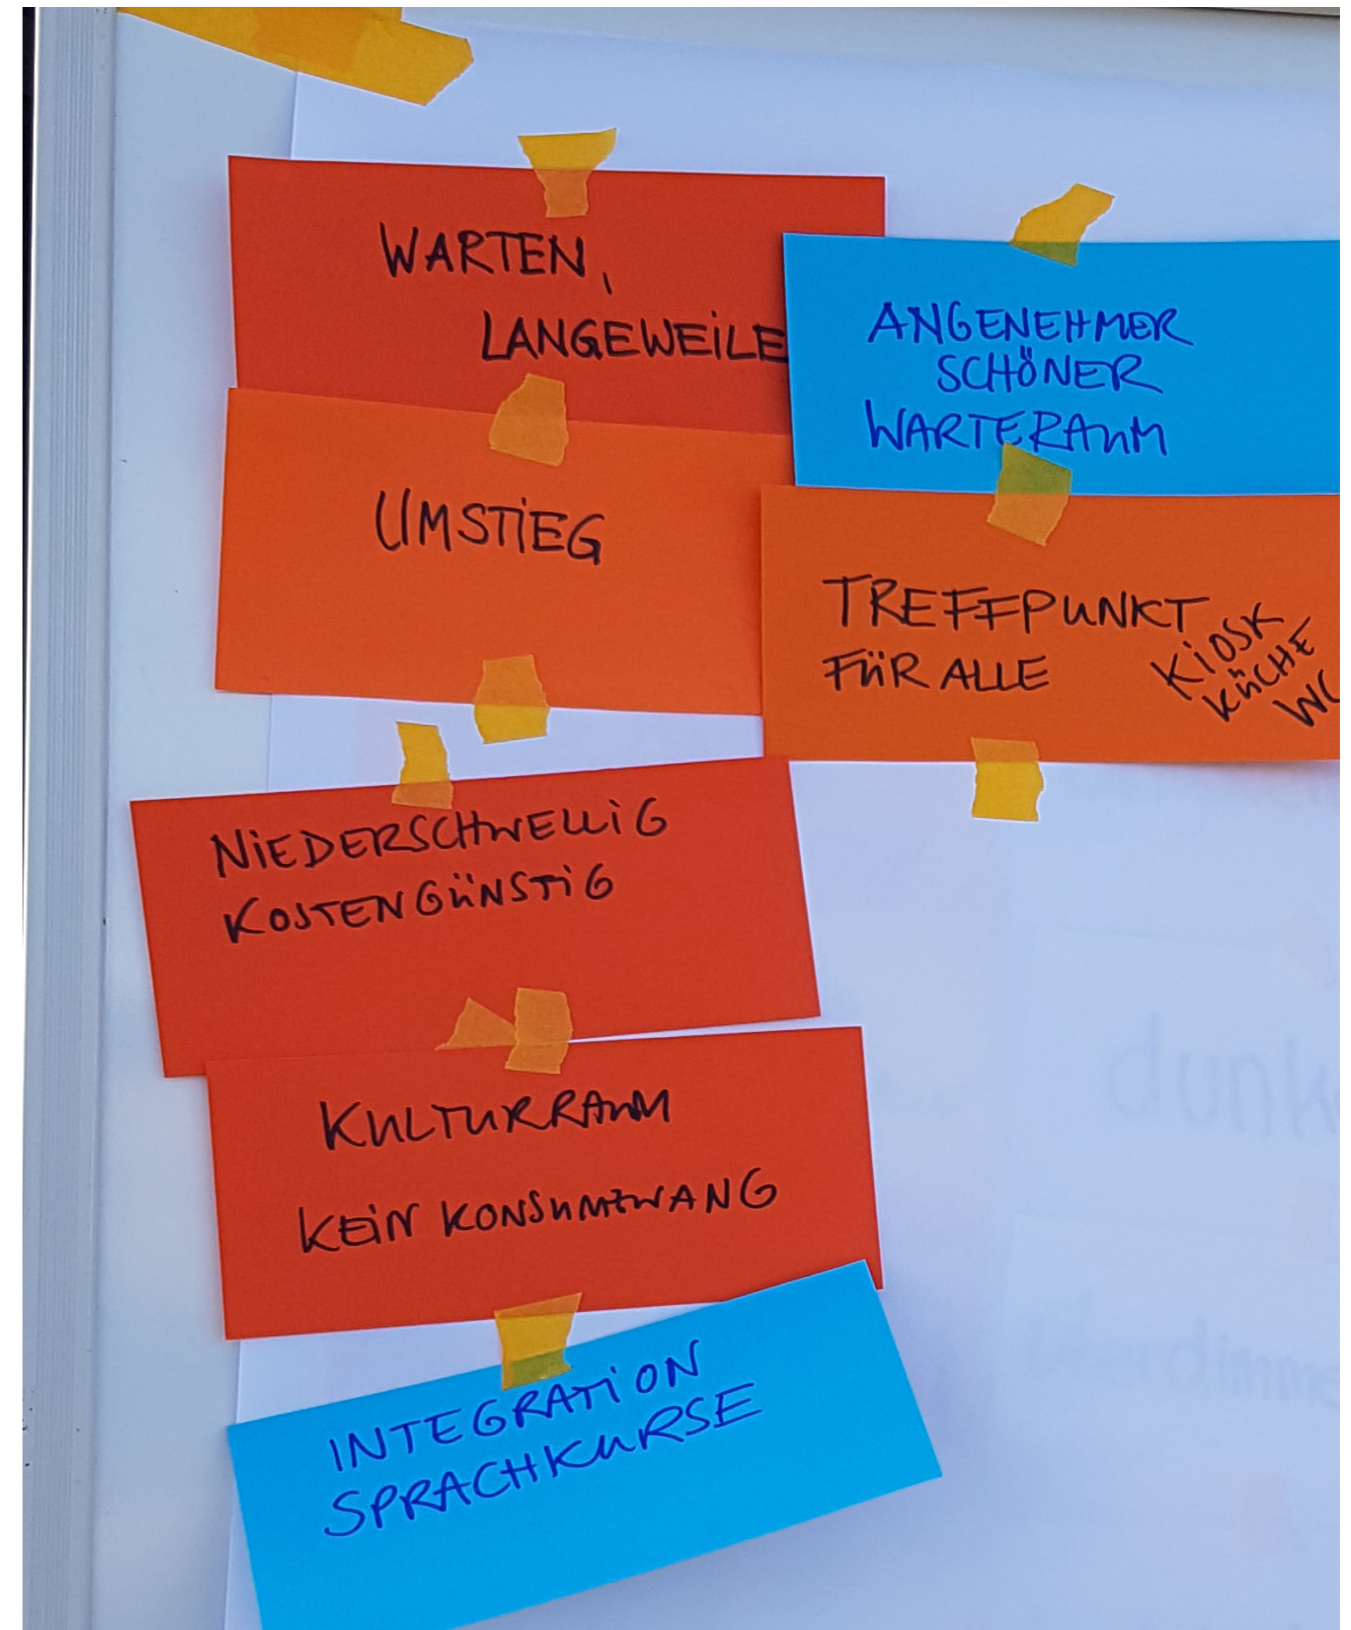 WARTEN,
LANGEWEILE
UMSTIEG
ANGENEHMER
SCHÖNER
WARTERAUM
TREFFPUNKT
FÜR ALLE
KIOSK
KÜCHE
WC
NIEDERSCHWELLIG
KOSTENGÜNSTIG
KULTURRAUM
KEIN KONSUMZWANG
INTEGRATION
SPRACHKURSE